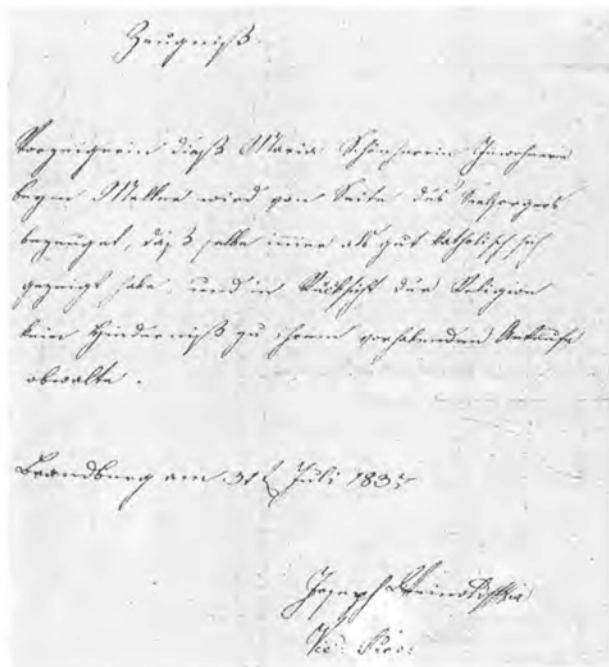 Zeugniß.
Vorzeigerin dieß Maria Schönherrin Inwohnerin
beym Melker wird von Seite des Seelsorgers
bezeuget, daß selbe immer als gut katholisch sich
gezeigt habe, und in Rücksicht der Religion
kein Hinderniß zu ihrem vorhabenden Ankaufe
obwalte.
Brandberg am 31t Juli 1835
Joseph
Vic. Prov: